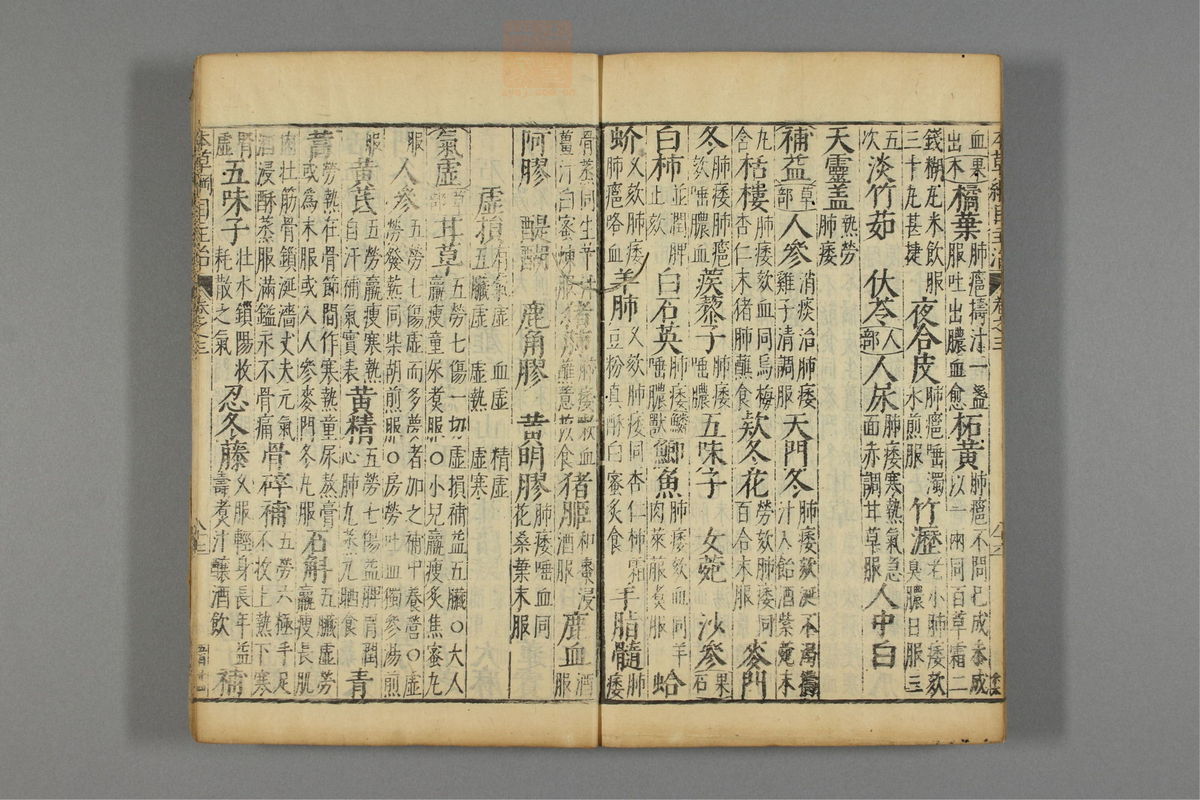 血果 肺癰擣汁一盞 肺癰不問已成未成
出木 橘葉 服吐出膿血愈 柘黃 以一兩同百草霜二
錢糊丸米飲服 夜合皮 肺癰唾濁 竹瀝 老小肺痿欬
三十丸甚捷 水煎服 臭膿日服三
五 淡竹茹 伏苓 人 人尿 肺痿寒熱氣急 人中白
次 部 面赤調甘草服
天靈蓋 熱勞
肺痿
補益 草 人參 消痰治肺痿 天門冬 肺痿欬涎不渴擣
部 雞子清調服 汁入飴酒紫菀末
丸 栝樓 肺痿欬血同烏梅 欵冬花 勞欬肺痿同 麥門
含 杏仁末猪肺蘸食 百合末服
冬 肺痿肺癰 蒺藜子 肺痿 五味子 女菀 沙參 果
欬唾膿血 唾膿 石
白柿 並潤脾 白石英 肺痿 鱗 鯽魚 肺痿欬血同羊 蛤
止欬 唾膿 獸 肉萊服服
蚧 久欬肺痿 羊肺 久欬肺痿同杏仁柿霜 羊脂髓 肺
肺癰咯血 豆粉真酥白蜜炙食 痿
骨蒸同生 猪胰 和棗浸酒 鹿血
薑汁白蜜煉服 薏苡食 酒服 服
阿膠 醍醐 鹿角膠 黃明膠 肺痿唾血同
花桑葉末服
虛損 有氣虛 血虛 精虛
五臟虛 虛熱 虛寒
氣虛 草 甘草 五勞七傷一切虛損補益五臟○大人
部 羸瘦童尿煑服○小兒羸瘦炙焦蜜丸
服 人參 五勞七傷虛而多夢者加之補中養營○虛
勞發熱同柴胡煎服○房勞吐血獨參湯煎
服 黃芪 五勞羸瘦寒熱 黃精 五勞七傷益脾胃潤 青
自汗補氣實表 心肺九蒸九晒食
蒿 勞熱在骨節間作寒熱童尿熬膏 石斛 五臟虛勞
或為末服或入人參麥門冬丸服 羸瘦長肌
肉壯筋骨鎖涎濇丈夫元氣 骨碎補 五勞六極手足
酒浸酥蒸服滿鑑永不骨痛 不收上熱下寒
腎 五味子 壯水鎖陽收 忍冬藤 久服輕身長年益 補
虛 耗散之氣 壽煮汁釀酒飲